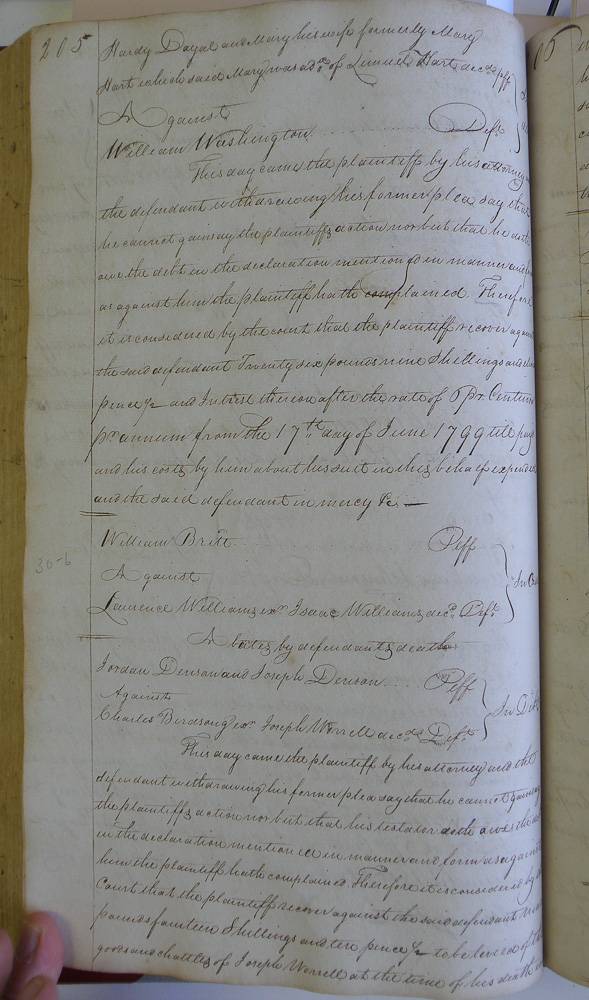 205
Hardy Doyal and Mary his wife formerly Mary
Hart which said Mary was adx of Lemuel Hart decd plff
Against
William Washington Deft
This day came the plaintiff by his attorney
the defendant withdrawing his former plea say that
he cannot gainsay the plaintiffs action nor but that he doth
owe the debt in the declaration mentioned in manner and
as against him the plaintiff hath complained Therefore
it is considered by the court that the plaintiff recover against
the said defendant Twenty six pounds nine Shillings and
pence ½ and Intrest thereon after the rate of 6 pr Centum
pr annum from the 17th day of June 1799 till
and his costs by him about his suit in this behalf expended
and the said defendant in mercy &c. —
William Britt Plff
Against In
Laurence Williams exr Isaac Williams decd Deft
30-6
Abates by defendants death
Jordan Denson and Joseph Denson Plff
Against In Debt
Charles Birdsong exr Joseph Worrell decd Deft
This day came the plaintiff by his attorney and the
defendant withdrawing his former plea say that he cannot gainsay
the plaintiffs action nor but that his testator doth owes the
in the declaration mention ed in manner and form as against
him the plaintiff hath complained. Therefore it is considered by the
Court that the plaintiff recover against the said defendant
pounds fourteen Shillings and ten pence ½ to be levied of the
goods and chattles of Joseph Worrell at the time of his death